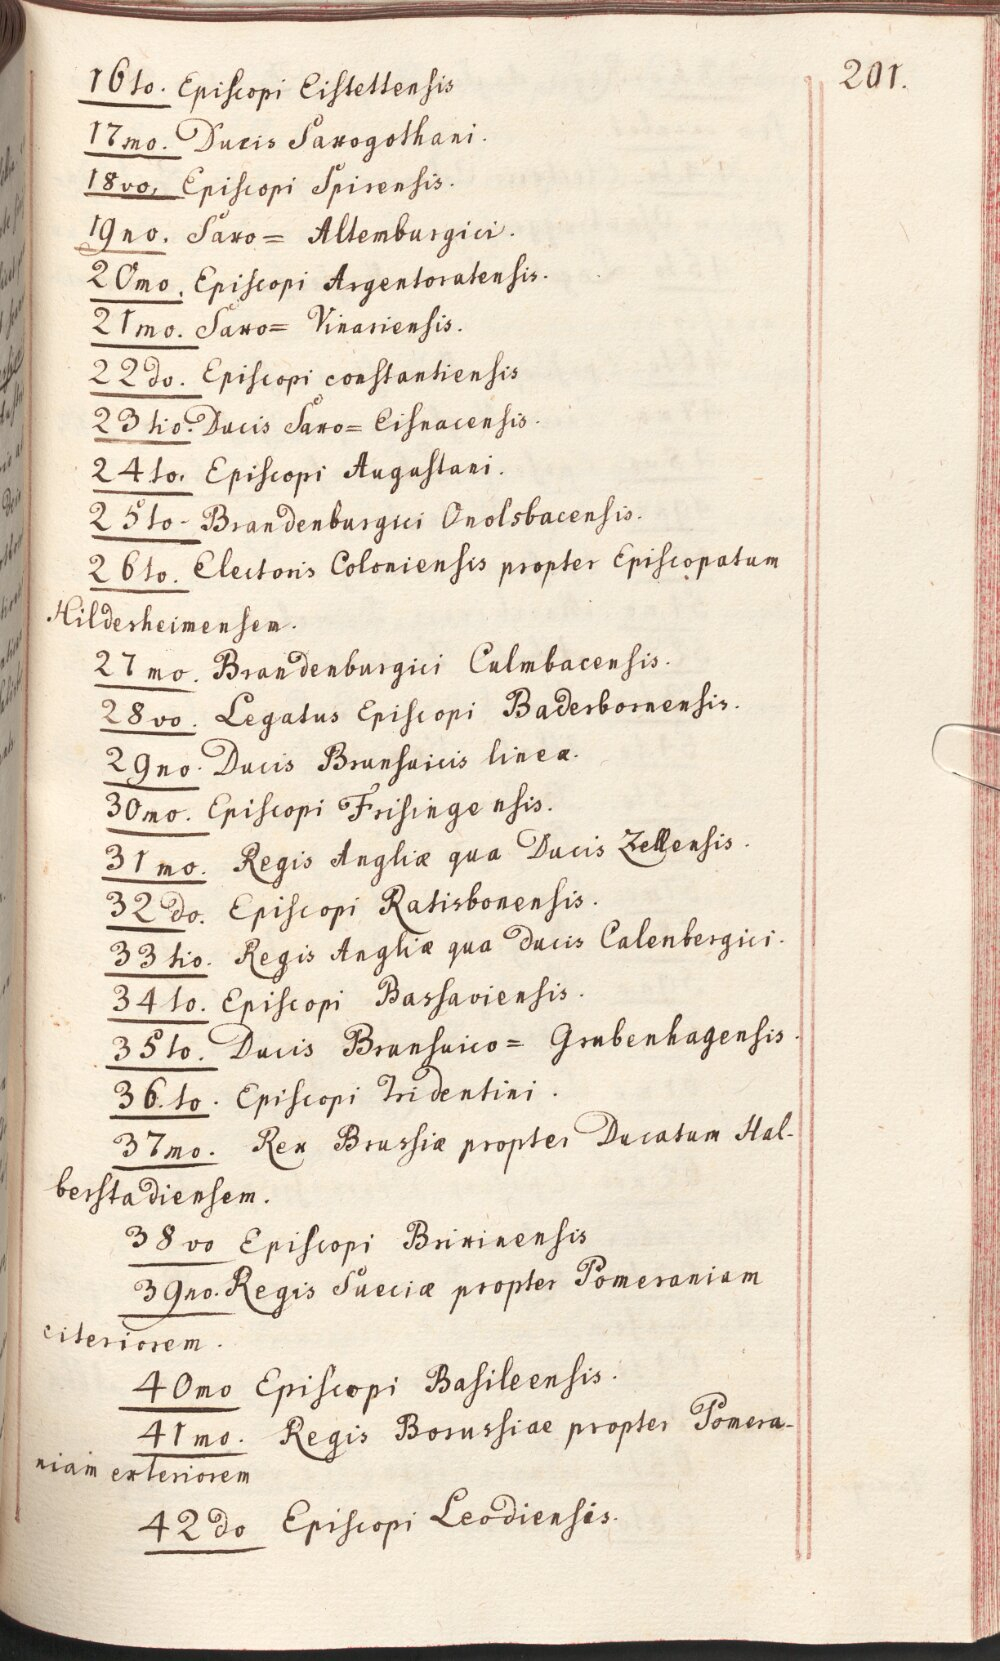 201.
16to. Episcopi Eistettensis
17mo. Ducis Saxogothani.
18vo. Episcopi Spirensis.
19no. Saxo= Altemburgici.
20mo. Episcopi Argentoratensis.
21mo. Saxo= Vinariensis.
22do. Episcopi constantiensis
23tio. Ducis Saxo= Eisnacensis.
24to. Episcopi Augustani.
25to. Brandenburgici Onolsbacensis.
26to. Electoris Coloniensis propter Episcopatum
Hildesheimensem.
27mo. Brandenburgici Culmbacensis.
28vo. Legatus Episcopi Baderbornensis.
29no. Ducis Brunsuicis linea.
30mo. Episcopi Frisingensis.
31mo. Regis Angliæ qua Ducis Zellensis.
32do. Episcopi Ratisbonensis.
33tio. Regis Angliæ qua ducis Calenbergici.
34to. Episcopi Bassaviensis.
35to. Ducis Brunsuico= Grubenhagensis.
36.to. Episcopi Tridentini.
37mo. Rex Brussiæ propter Ducatum Hal-
berstadiensem.
38vo Episcopi Brixinensis
39no. Regis Sueciæ propter Pomeraniam
citeriorem.
40mo Episcopi Basileensis.
41mo. Regis Borussiae propter Pomera-
niam exteriorem
42do Episcopi Leodiensis.